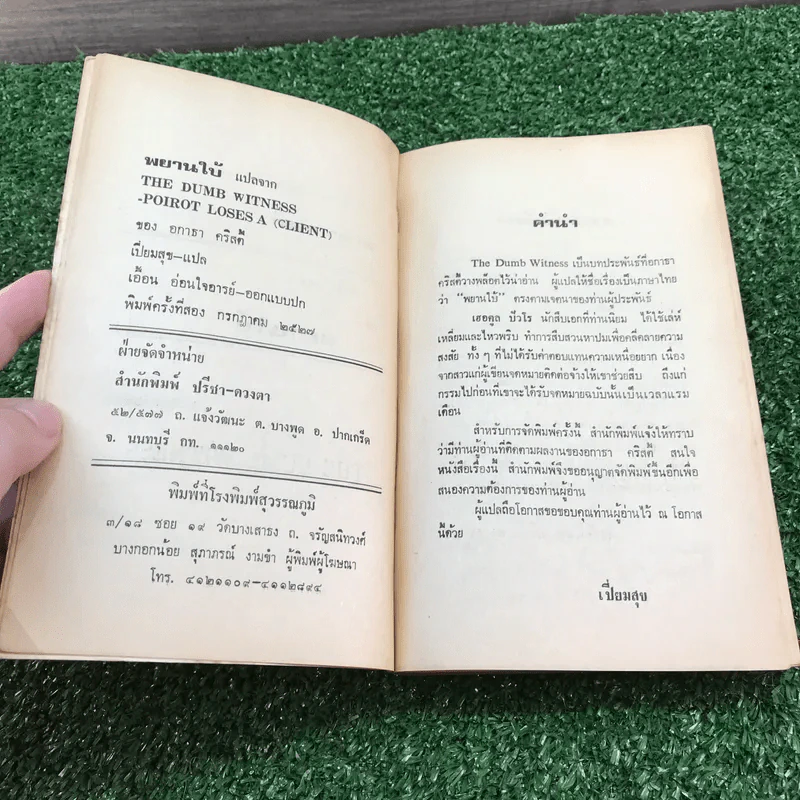 พยานใบ้ แปลจาก
THE DUMB WITNESS
-POIROT LOSES A (CLIENT)
ของ อกาธา คริสตี้
เปี่ยมสุข-แปล
เอื้อน อ่อนใจอารย์-ออกแบบปก
พิมพ์ครั้งที่สอง กรกฎาคม ๒๕๒๗
ฝ่ายจัดจำหน่าย
สำนักพิมพ์ ปรีชา-ดวงตา
๕๒/๕๗๗ ถ. แจ้งวัฒนะ ต. บางพูด อ. ปากเกร็ด
จ. นนทบุรี กท. ๑๑๑๒๐
พิมพ์ที่โรงพิมพ์สุวรรณภูมิ
๓/๑๘ ซอย ๑๙ วัดบางเสาธง ถ. จรัญสนิทวงศ์
บางกอกน้อย สุภาภรณ์ งามขำ ผู้พิมพ์ผู้โฆษณา
โทร. ๔๑๒๑๑๐๙-๔๑๑๒๘๙๔
คำนำ
The Dumb Witness เป็นบทประพันธ์ที่อกาธา
คริสตี้วางพล็อตไว้น่าอ่าน ผู้แปลให้ชื่อเรื่องเป็นภาษาไทย
ว่า "พยานใบ้" ตรงตามเจตนาของท่านผู้ประพันธ์
เฮอคูล ปัวโร นักสืบเอกที่ท่านนิยม ได้ใช้เล่ห์
เหลี่ยมและไหวพริบ ทำการสืบสวนหาปมเพื่อคลี่คลายความ
สงสัย ทั้ง ๆ ที่ไม่ได้รับค่าตอบแทนความเหนื่อยยาก เนื่อง
จากสาวแก่ผู้เขียนจดหมายติดต่อจ้างให้เขาช่วยสืบ ถึงแก่
กรรมไปก่อนที่เขาจะได้รับจดหมายฉบับนั้นเป็นเวลาแรม
เดือน
สำหรับการจัดพิมพ์ครั้งนี้ สำนักพิมพ์แจ้งให้ทราบ
ว่ามีท่านผู้อ่านที่ติดตามผลงานของอกาธา คริสตี้ สนใจ
หนังสือเรื่องนี้ สำนักพิมพ์จึงขออนุญาตจัดพิมพ์ขึ้นอีกเพื่อ
สนองความต้องการของท่านผู้อ่าน
ผู้แปลถือโอกาสขอขอบคุณท่านผู้อ่านไว้ ณ โอกาส
นี้ด้วย
เปี่ยมสุข